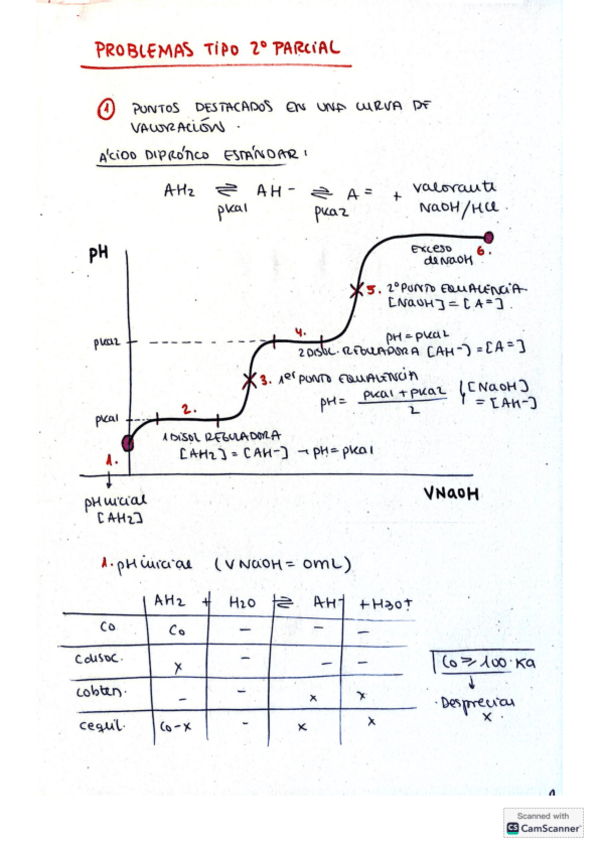 PROBLEMAS TIPO 2º PARCIAL
① PUNTOS DESTACADOS EN UNA CURVA DE
VALORACIÓN.
ÁCIDO DIPRÓTICO ESTÁNDAR:
AH2 ⇌ AH- ⇌ A= + valorante
pka1 pka2 NaOH/HCl.
pH
Exceso
de NaOH 6.
5. 2º PUNTO EQUIVALENCIA
[NaOH] = [A=]
pka2
4. pH = pka2
2 DISOL. REGULADORA [AH-] = [A=]
3. 1er PUNTO EQUIVALENCIA
pH = pka1 + pka2 / 2 { [NaOH]
= [AH-]
pka1
2.
1 DISOL REGULADORA
[AH2] = [AH-] → pH = pka1
1.
pH inicial
[AH2]
VNaOH
1. pH inicial (VNaOH = 0mL)
AH2 + H2O ⇌ AH- + H3O+
Co Co - - -
Cdisoc. x - - -
Cobten. - - x x
Cequil. Co-x - x x
Co ≥ 100·Ka
↓
·Despreciar
x.
Scanned with
CS CamScanner